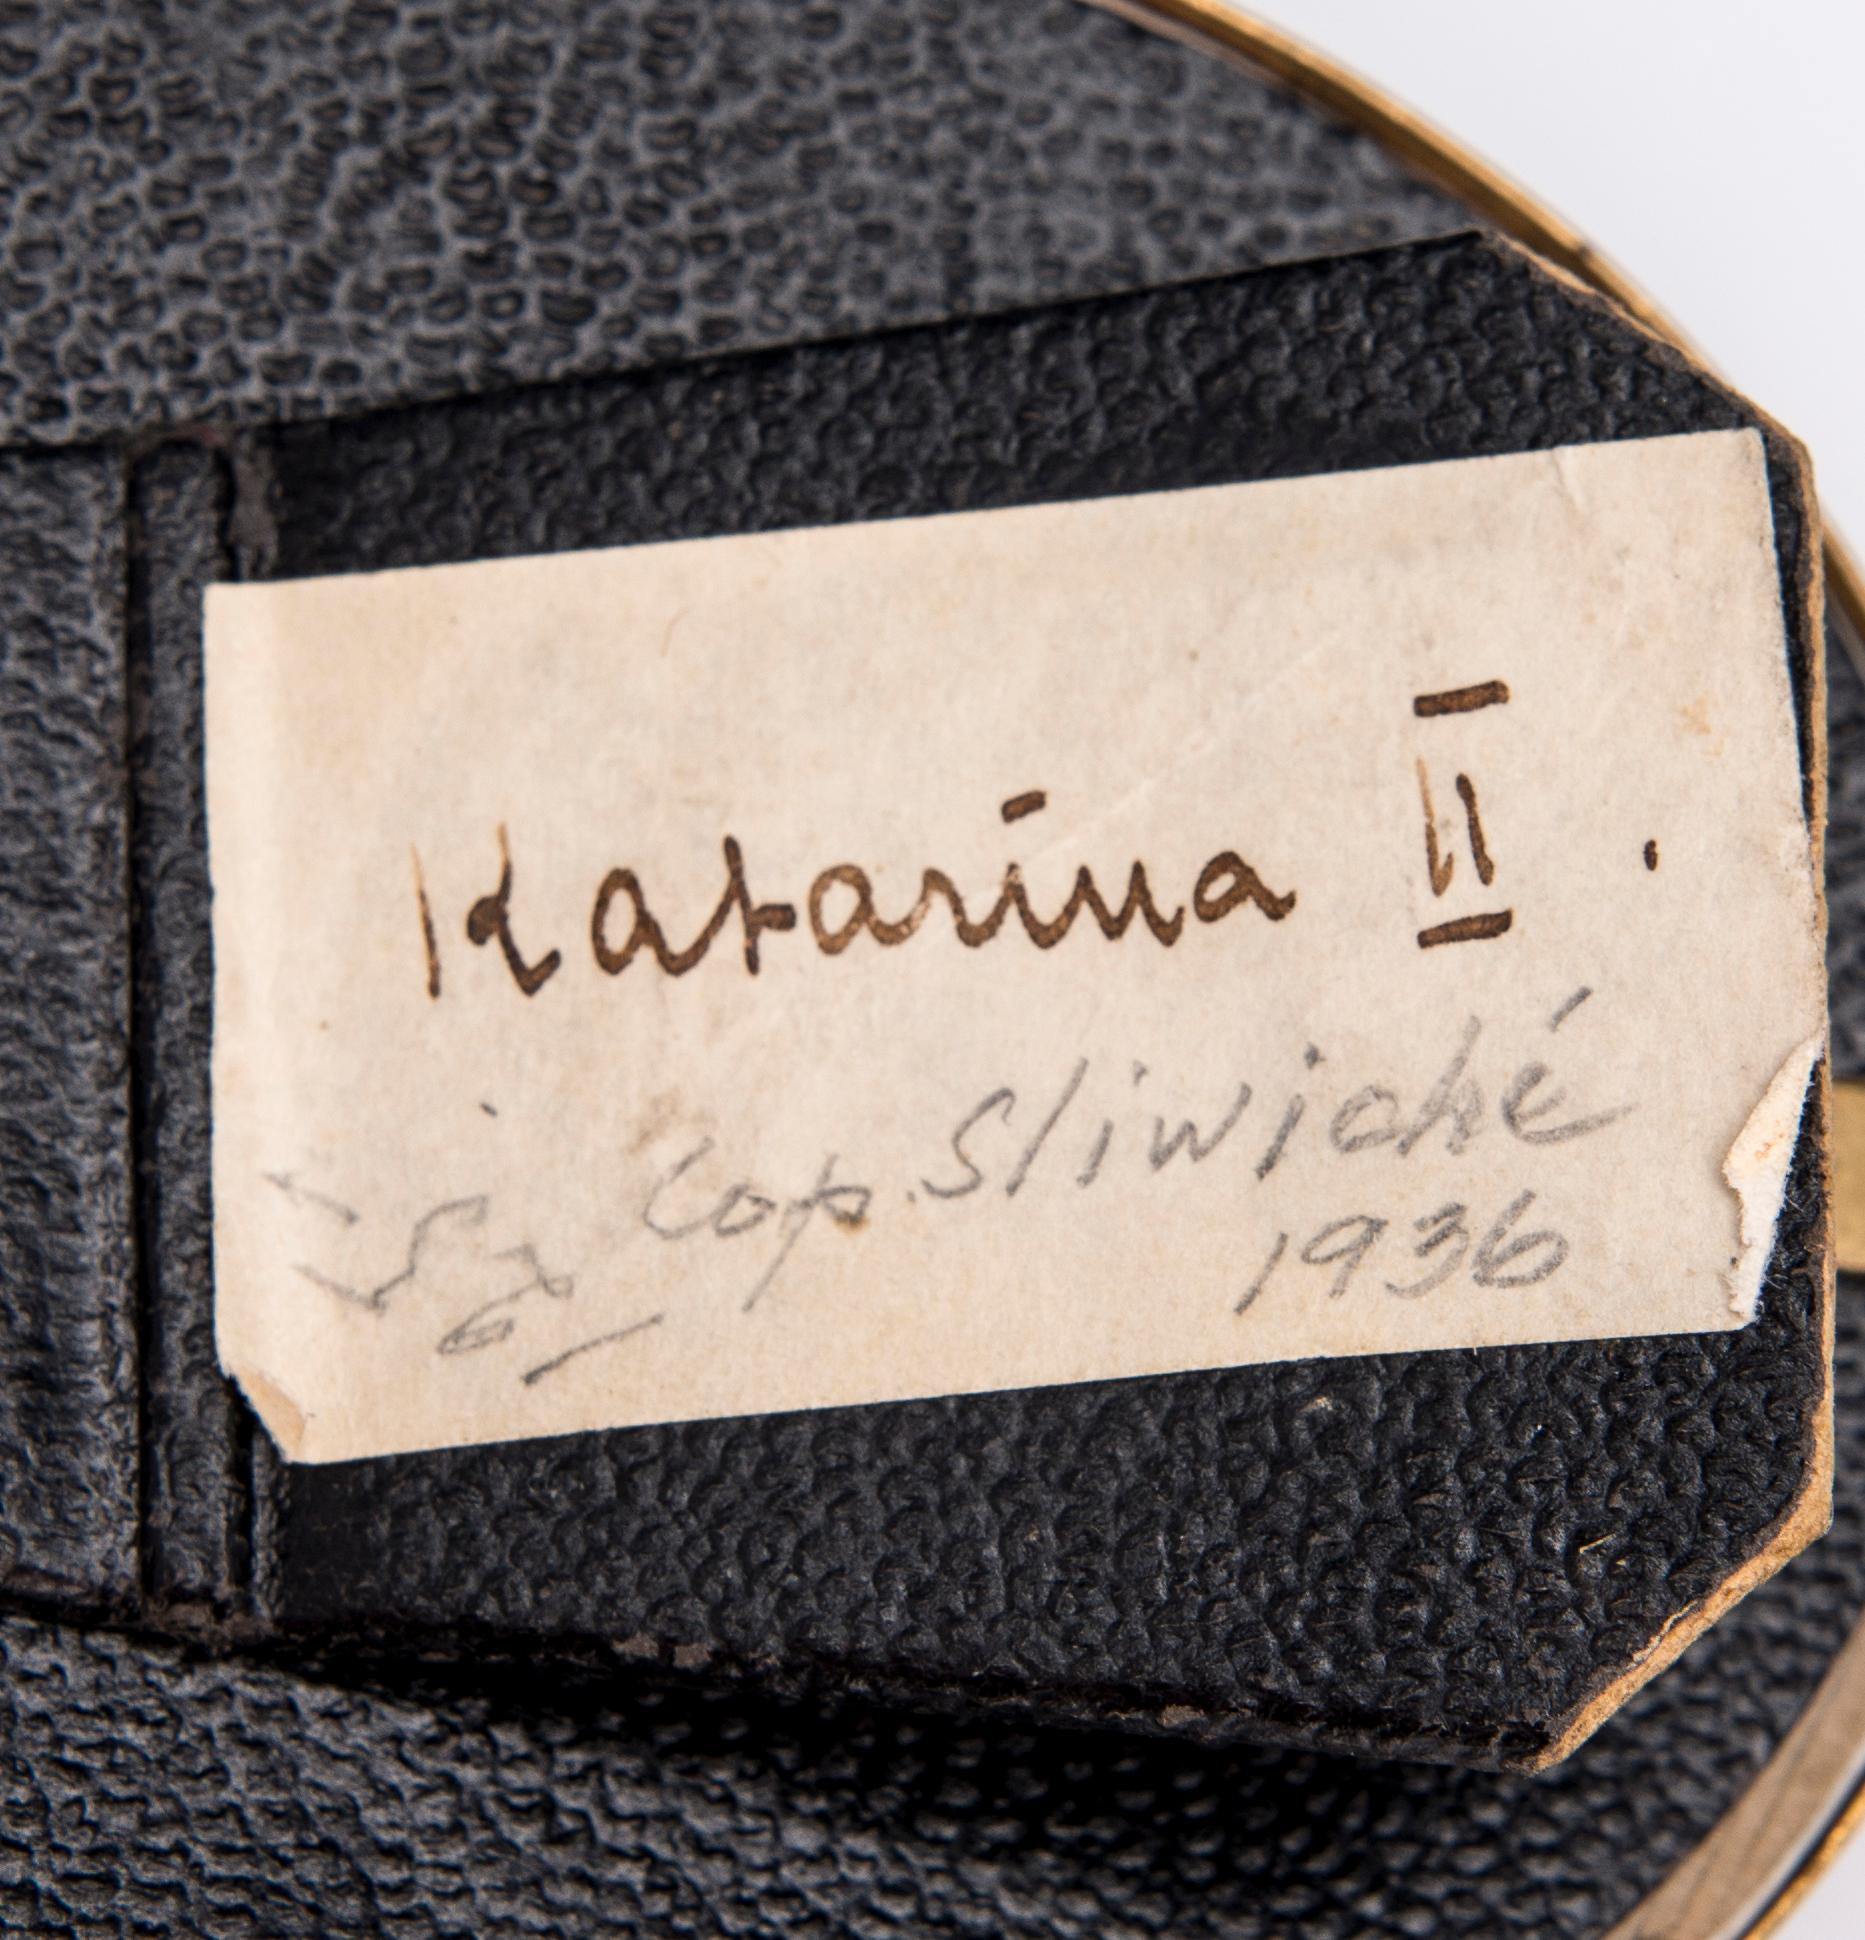 Katarina II.
Cop. Sliwické
1936